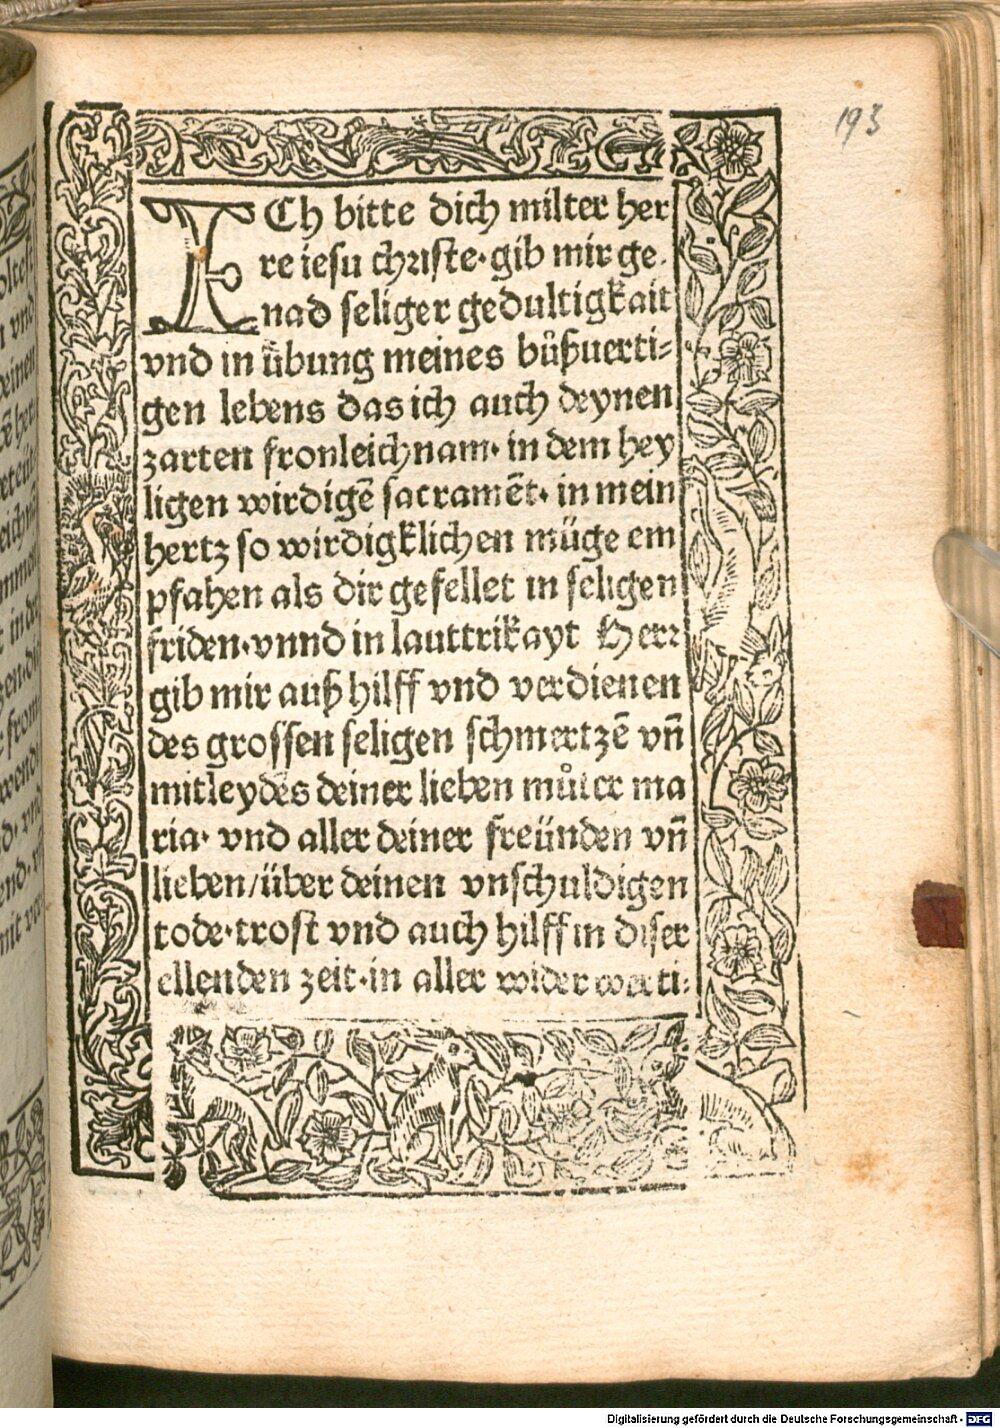 193
ICh bitte dich milter her
re iesu christe·gib mir ge-
nad seliger gedultigkait
vnd in übung meines bůßuerti=
gen lebens das ich auch deynen
zarten fronleichnam· in dem hey
ligen wirdigē sacramēt· in mein
hertz so wirdigklichen müge em
pfahen als dir gefellet in seligen
friden·vnnd in lauttrikayt Herr
gib mir auß hilff vnd verdienen
des grossen seligen schmertzē vñ
mitleydēs deiner lieben můter ma
ria· vnd aller deiner freünden vñ
lieben/über deinen vnschuldigen
tode·trost vnd auch hilff in diser
ellenden zeit·in aller wider werti=
Digitalisierung gefördert durch die Deutsche Forschungsgemeinschaft - DFG